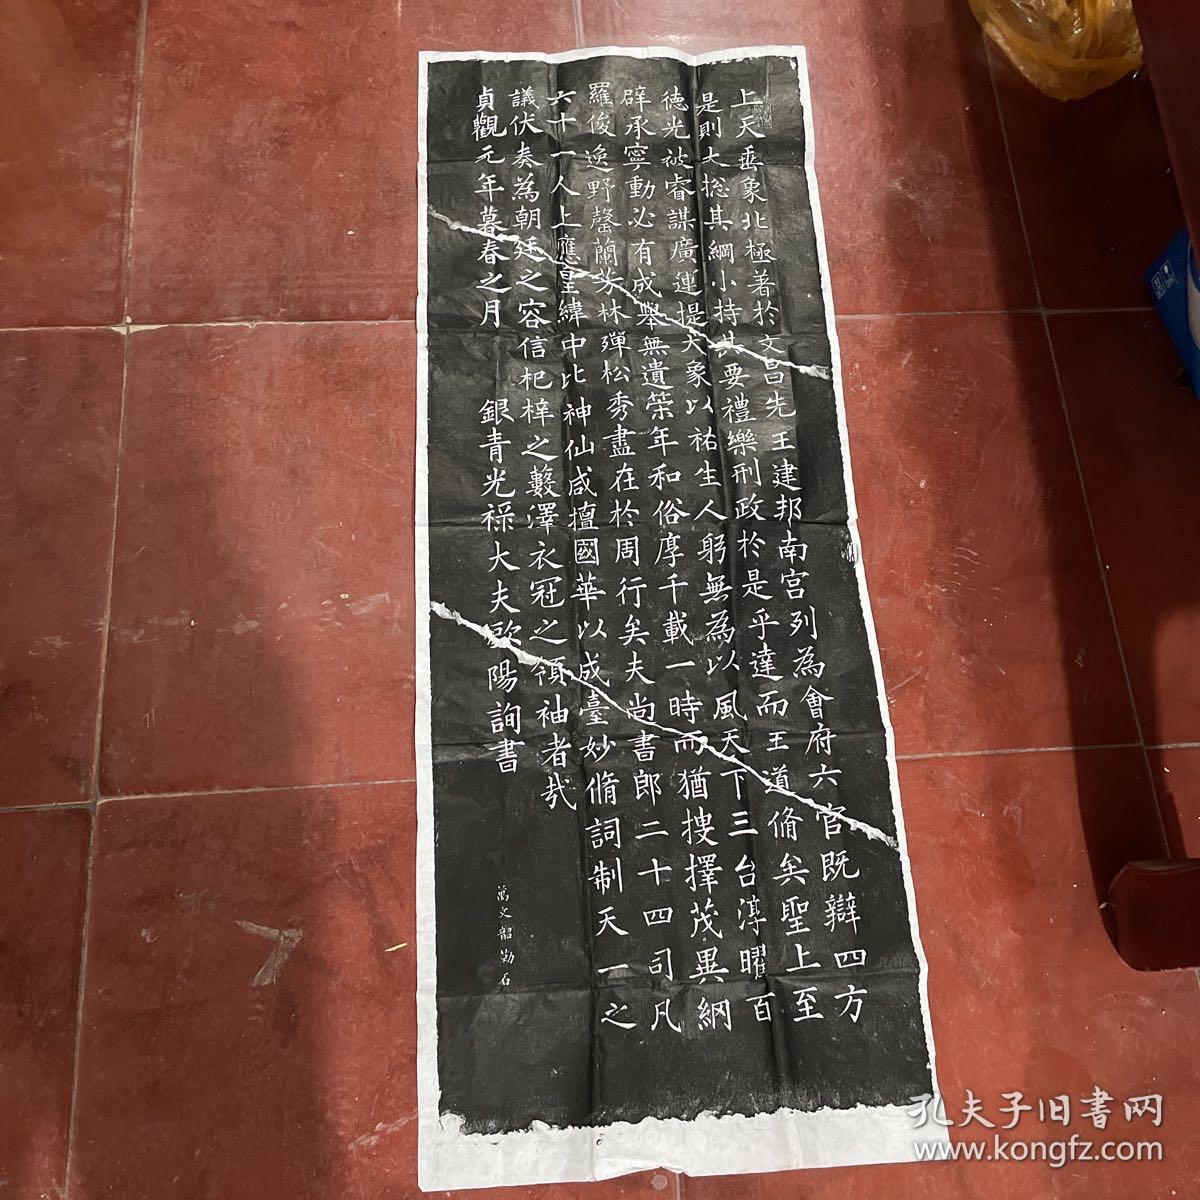 上天垂象北極著於文昌先王建邦南宮列為會府六官既辯四方
是則大揔其綱小持其要禮樂刑政於是乎達而王道脩矣聖上至
德光被睿謀廣運提大象以祐生人躬無為以風天下三台淳曜百
辟承寧動必有成舉無遺策年和俗厚千載一時而猶搜擇茂異網
羅俊逸野罄蘭芬林殫松秀盡在於周行矣夫尚書郎二十四司凡
六十一人上應星緯中比神仙咸擅國華以成臺妙脩詞制天一之
議伏奏為朝廷之容信杞梓之藪澤衣冠之領袖者哉
貞觀元年暮春之月 銀青光祿大夫歐陽詢書
萬文韶勒石
孔夫子旧書网
www.kongfz.com